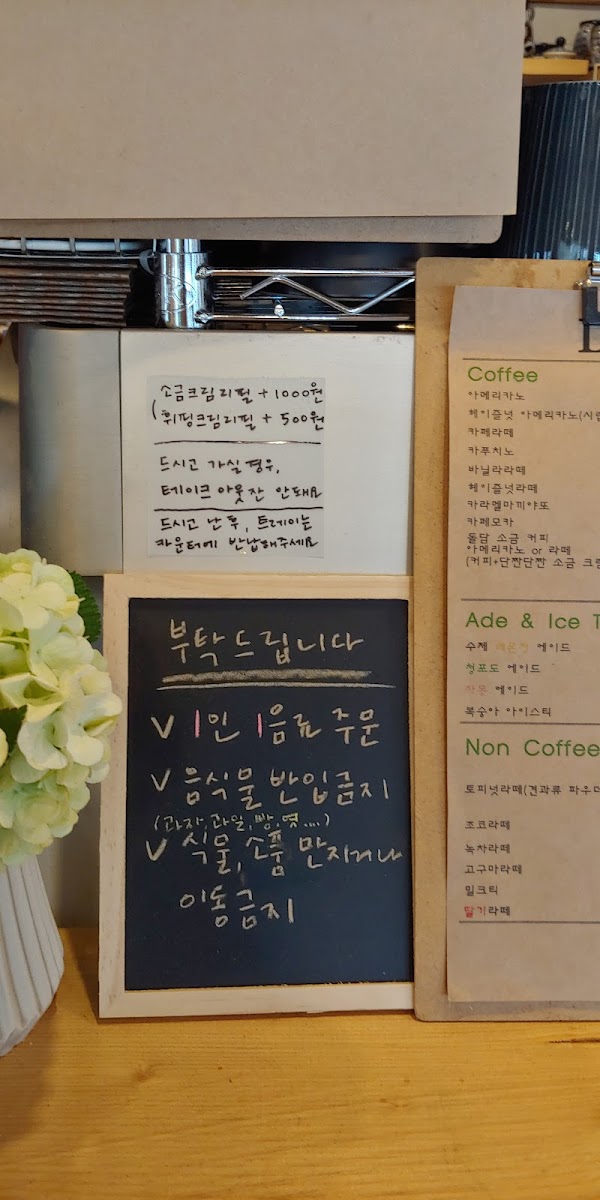 소금크림리필 + 1000원
휘핑크림리필 + 500원
드시고 가실 경우,
테이크 아웃잔 안돼요
드시고 난 후, 트레이는
카운터에 반납해주세요
부탁드립니다
V 1인 1음료 주문
V 음식물 반입금지
(과자,과일,빵,엿....)
V 식물, 소품 만지거나
이동금지
Coffee
아메리카노
헤이즐넛 아메리카노(시럽
카페라떼
카푸치노
바닐라라떼
헤이즐넛라떼
카라멜마끼야또
카페모카
돌담 소금 커피
아메리카노 or 라떼
(커피+단짠단짠 소금 크림
Ade & Ice T
수제 레몬청 에이드
청포도 에이드
자몽 에이드
복숭아 아이스티
Non Coffee
토피넛라떼(견과류 파우더
초코라떼
녹차라떼
고구마라떼
밀크티
딸기라떼